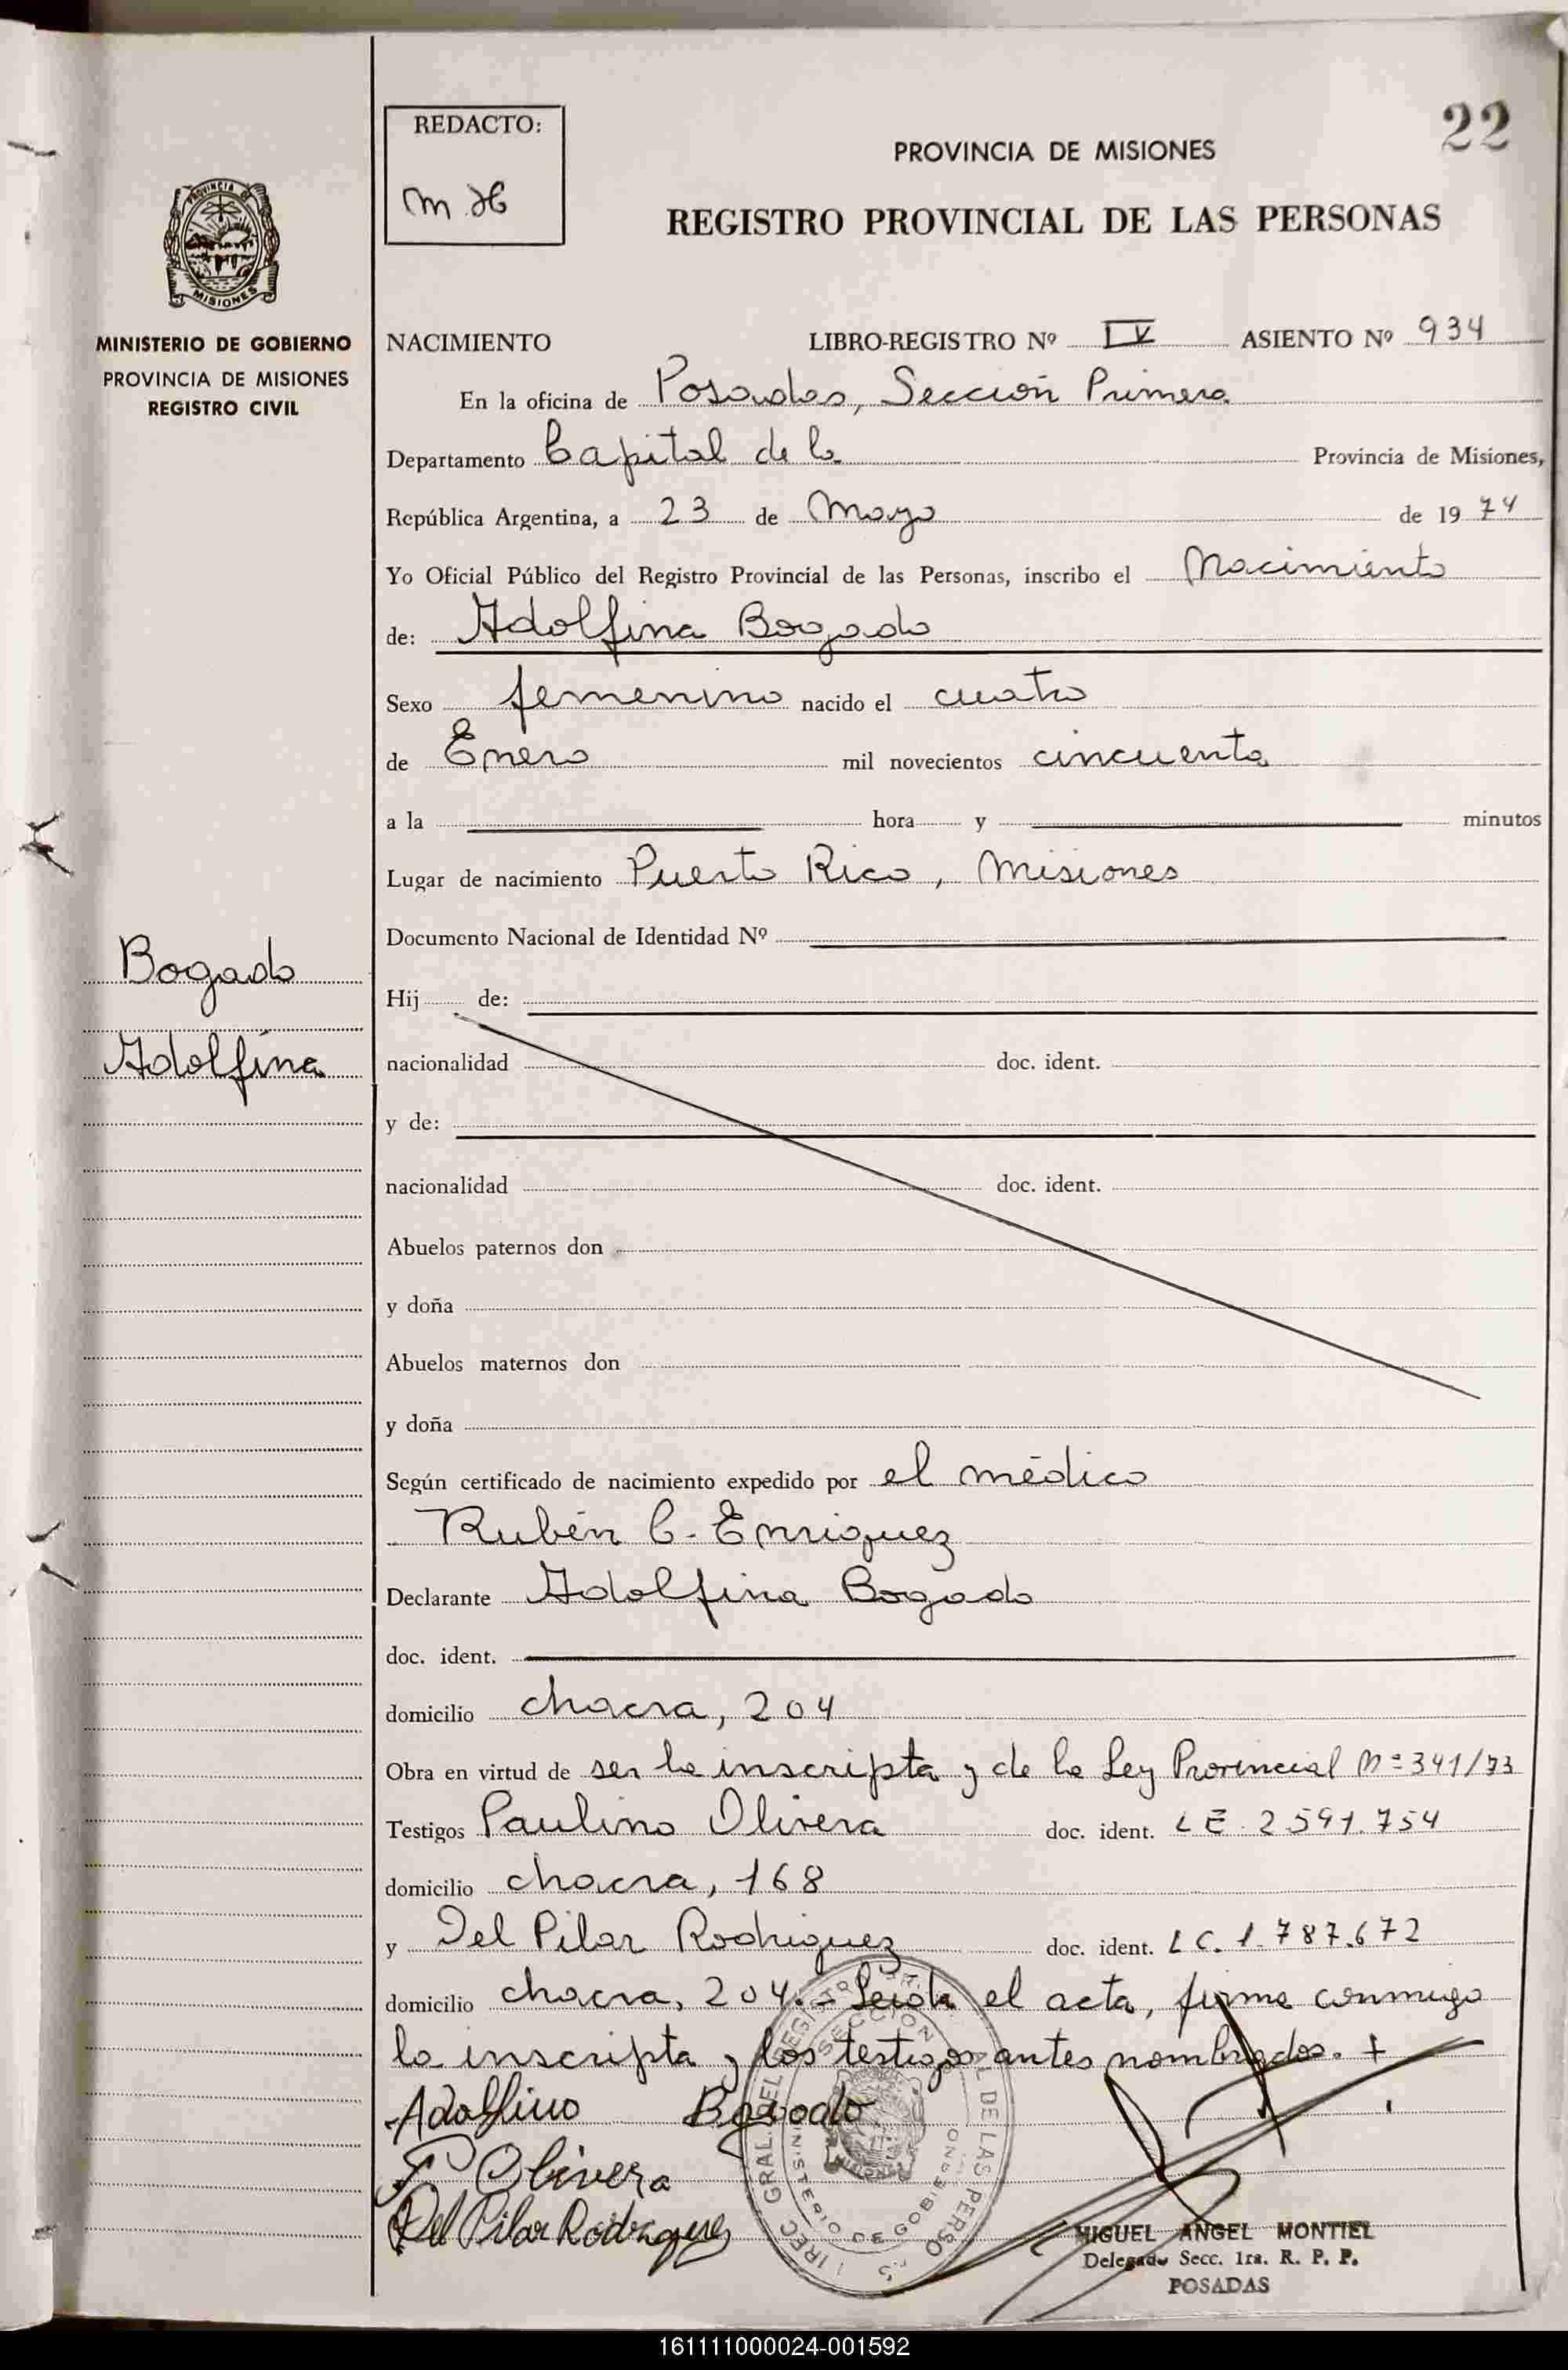 22
REDACTO:
M H
PROVINCIA DE MISIONES
REGISTRO PROVINCIAL DE LAS PERSONAS
PROVINCIA DE
MISIONES
MINISTERIO DE GOBIERNO
PROVINCIA DE MISIONES
REGISTRO CIVIL
NACIMIENTO LIBRO-REGISTRO Nº IV ASIENTO Nº 934
En la oficina de Posadas, Sección Primera
Departamento Capital de la Provincia de Misiones,
República Argentina, a 23 de Mayo de 1974
Yo Oficial Público del Registro Provincial de las Personas, inscribo el Nacimiento
de: Adolfina Bogado
Sexo femenino nacido el cuatro
de Enero mil novecientos cincuenta
a la hora y minutos
Lugar de nacimiento Puerto Rico, Misiones
Documento Nacional de Identidad Nº
Bogado
Adolfina
Hij de:
nacionalidad doc. ident.
y de:
nacionalidad doc. ident.
Abuelos paternos don
y doña
Abuelos maternos don
y doña
Según certificado de nacimiento expedido por el médico
Rubén C. Enriquez
Declarante Adolfina Bogado
doc. ident.
domicilio chacra, 204
Obra en virtud de ser la inscripta y de la Ley Provincial Nº 341/73
Testigos Paulino Olivera doc. ident. LE. 2591.754
domicilio chacra, 168
y Del Pilar Rodriguez doc. ident. LC. 1.787.672
domicilio chacra, 204.- Leida el acta, firma conmigo
la inscripta y los testigos antes nombrados. +
Adolfina Bogado
P Olivera
Del Pilar Rodriguez
MIGUEL ANGEL MONTIEL
Delegado Secc. 1ra. R. P. P.
POSADAS
161111000024-001592